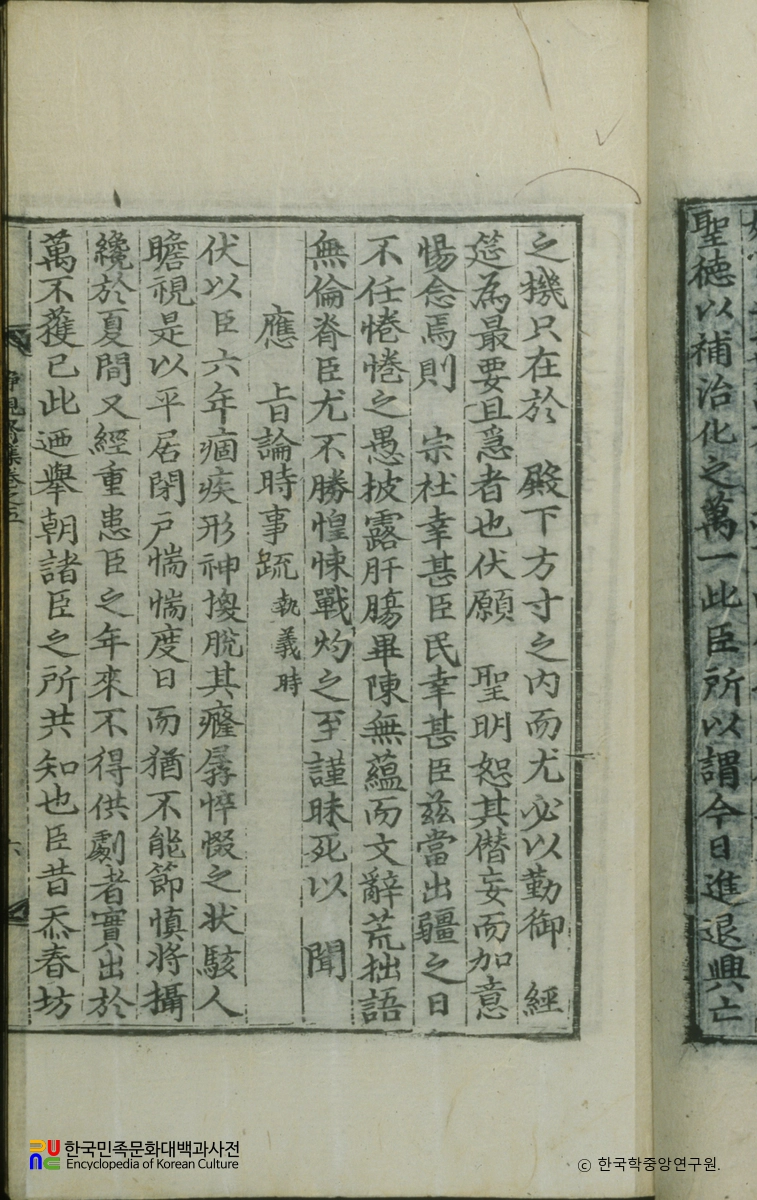 聖德以補治化之萬一此臣所以謂今日進退興亡
之機只在於 殿下方寸之內而尤必以勤御 經
筵爲最要且急者也伏願 聖明恕其僭妄而加意
惕念焉則 宗社幸甚臣民幸甚臣玆當出疆之日
不任惓惓之愚披露肝膓畢陳無蘊而文辭荒拙語
無倫脊臣尤不勝惶悚戰灼之至謹昧死以 聞
應 旨論時事疏 執義時
伏以臣六年痼疾形神換脫其癃孱悴惙之狀駭人
瞻視是以平居閉戶惴惴度日而猶不能節愼將攝
纔於夏間又經重患臣之年來不得供劇者實出於
萬不獲已此迺擧朝諸臣之所共知也臣昔忝春坊
靜觀齋集卷之五
六
한국민족문화대백과사전
Encyclopedia of Korean Culture
ⓒ 한국학중앙연구원.